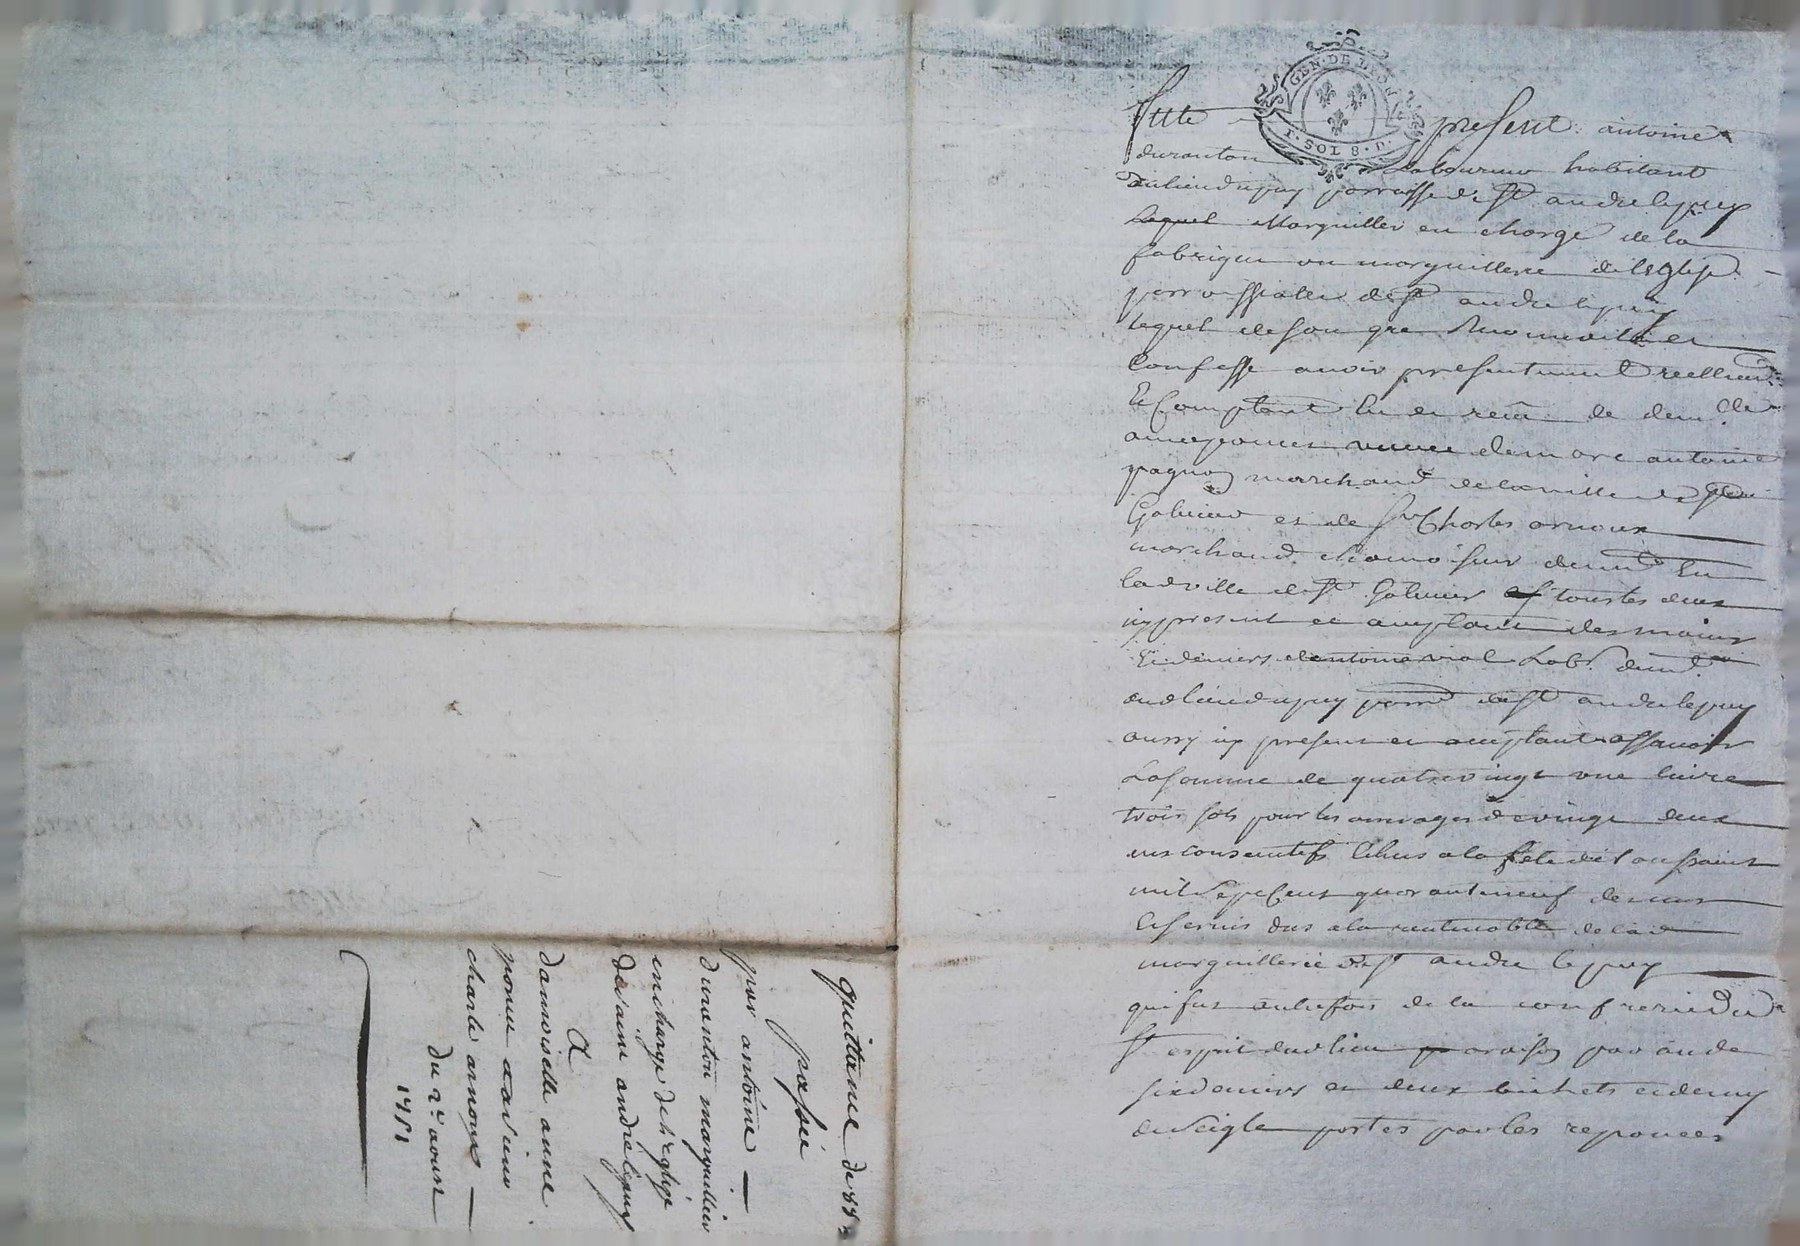 GEN. DE LYON
1. SOL 8. D.
fut present antoine
duranton Laboureur habitant
du lieu du puy parroisse de st andre le puy
Lequel Marguillier en charge de la
fabrique ou marguillerie de leglise
parroissialle de st andre le puy
lequel de son gre
Confesse avoir presentement reellem
Et Comptant eu et receu de dem.lle
anne ponnet veuve de m arc antoine
pagnon marchand de la ville de st
Galmier et de Sr Charles arnoux
marchand chamoiseur demt En
lad ville de st Galmier tous les deux
icy present et acceptant des mains
Et deniers dantoine vial Lab.r demt
aud lieu du puy parre de st andre le puy
aussy icy present et acceptant assavoir
La somme de quatrevingt une livre
trois sols pour les arrerages de vingt deux
ans consecutifs Echus a la fete de toussaint
mil sept Cent quarante neuf des cens
Et servis dus a la rante noble de lad
marguillerie de st andre le puy
qui fut autrefois de la confrerie du
st esprit dud lieu a raison par an de
six deniers et deux bichets et demy
de seigle portes par les reponces
quittance de 81#
passée
par antoine
duranton marguillier
en charge de l'eglize
de saint andré le puy
A
damoiselle anne
ponnet et a sieur
charle arnoux
du 2e aoust
1751